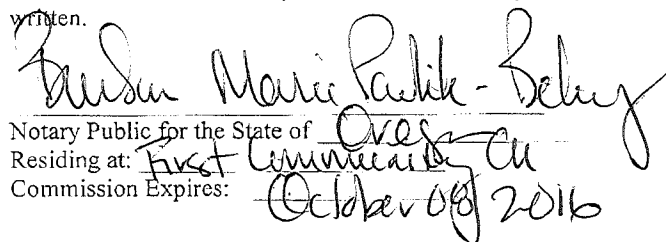 written.
Marie Pavlik-
Notary Public for the State of Oregon
Residing at: First Community CU
Commission Expires: October 08 2016